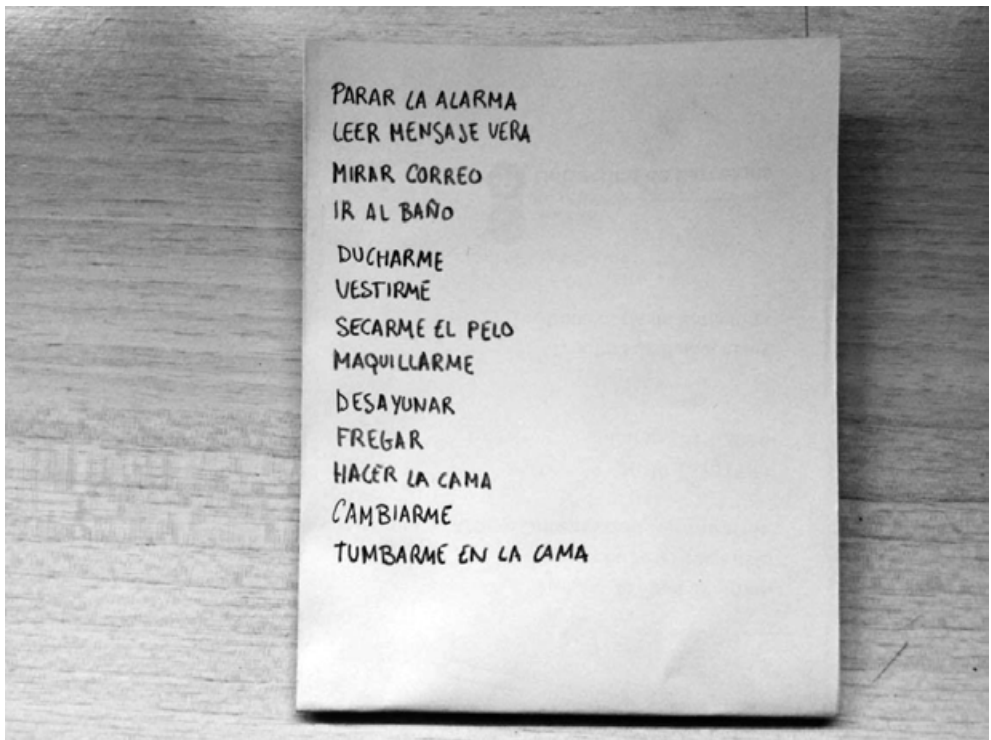 PARAR LA ALARMA
LEER MENSAJE VERA
MIRAR CORREO
IR AL BAÑO
DUCHARME
VESTIRME
SECARME EL PELO
MAQUILLARME
DESAYUNAR
FREGAR
HACER LA CAMA
CAMBIARME
TUMBARME EN LA CAMA